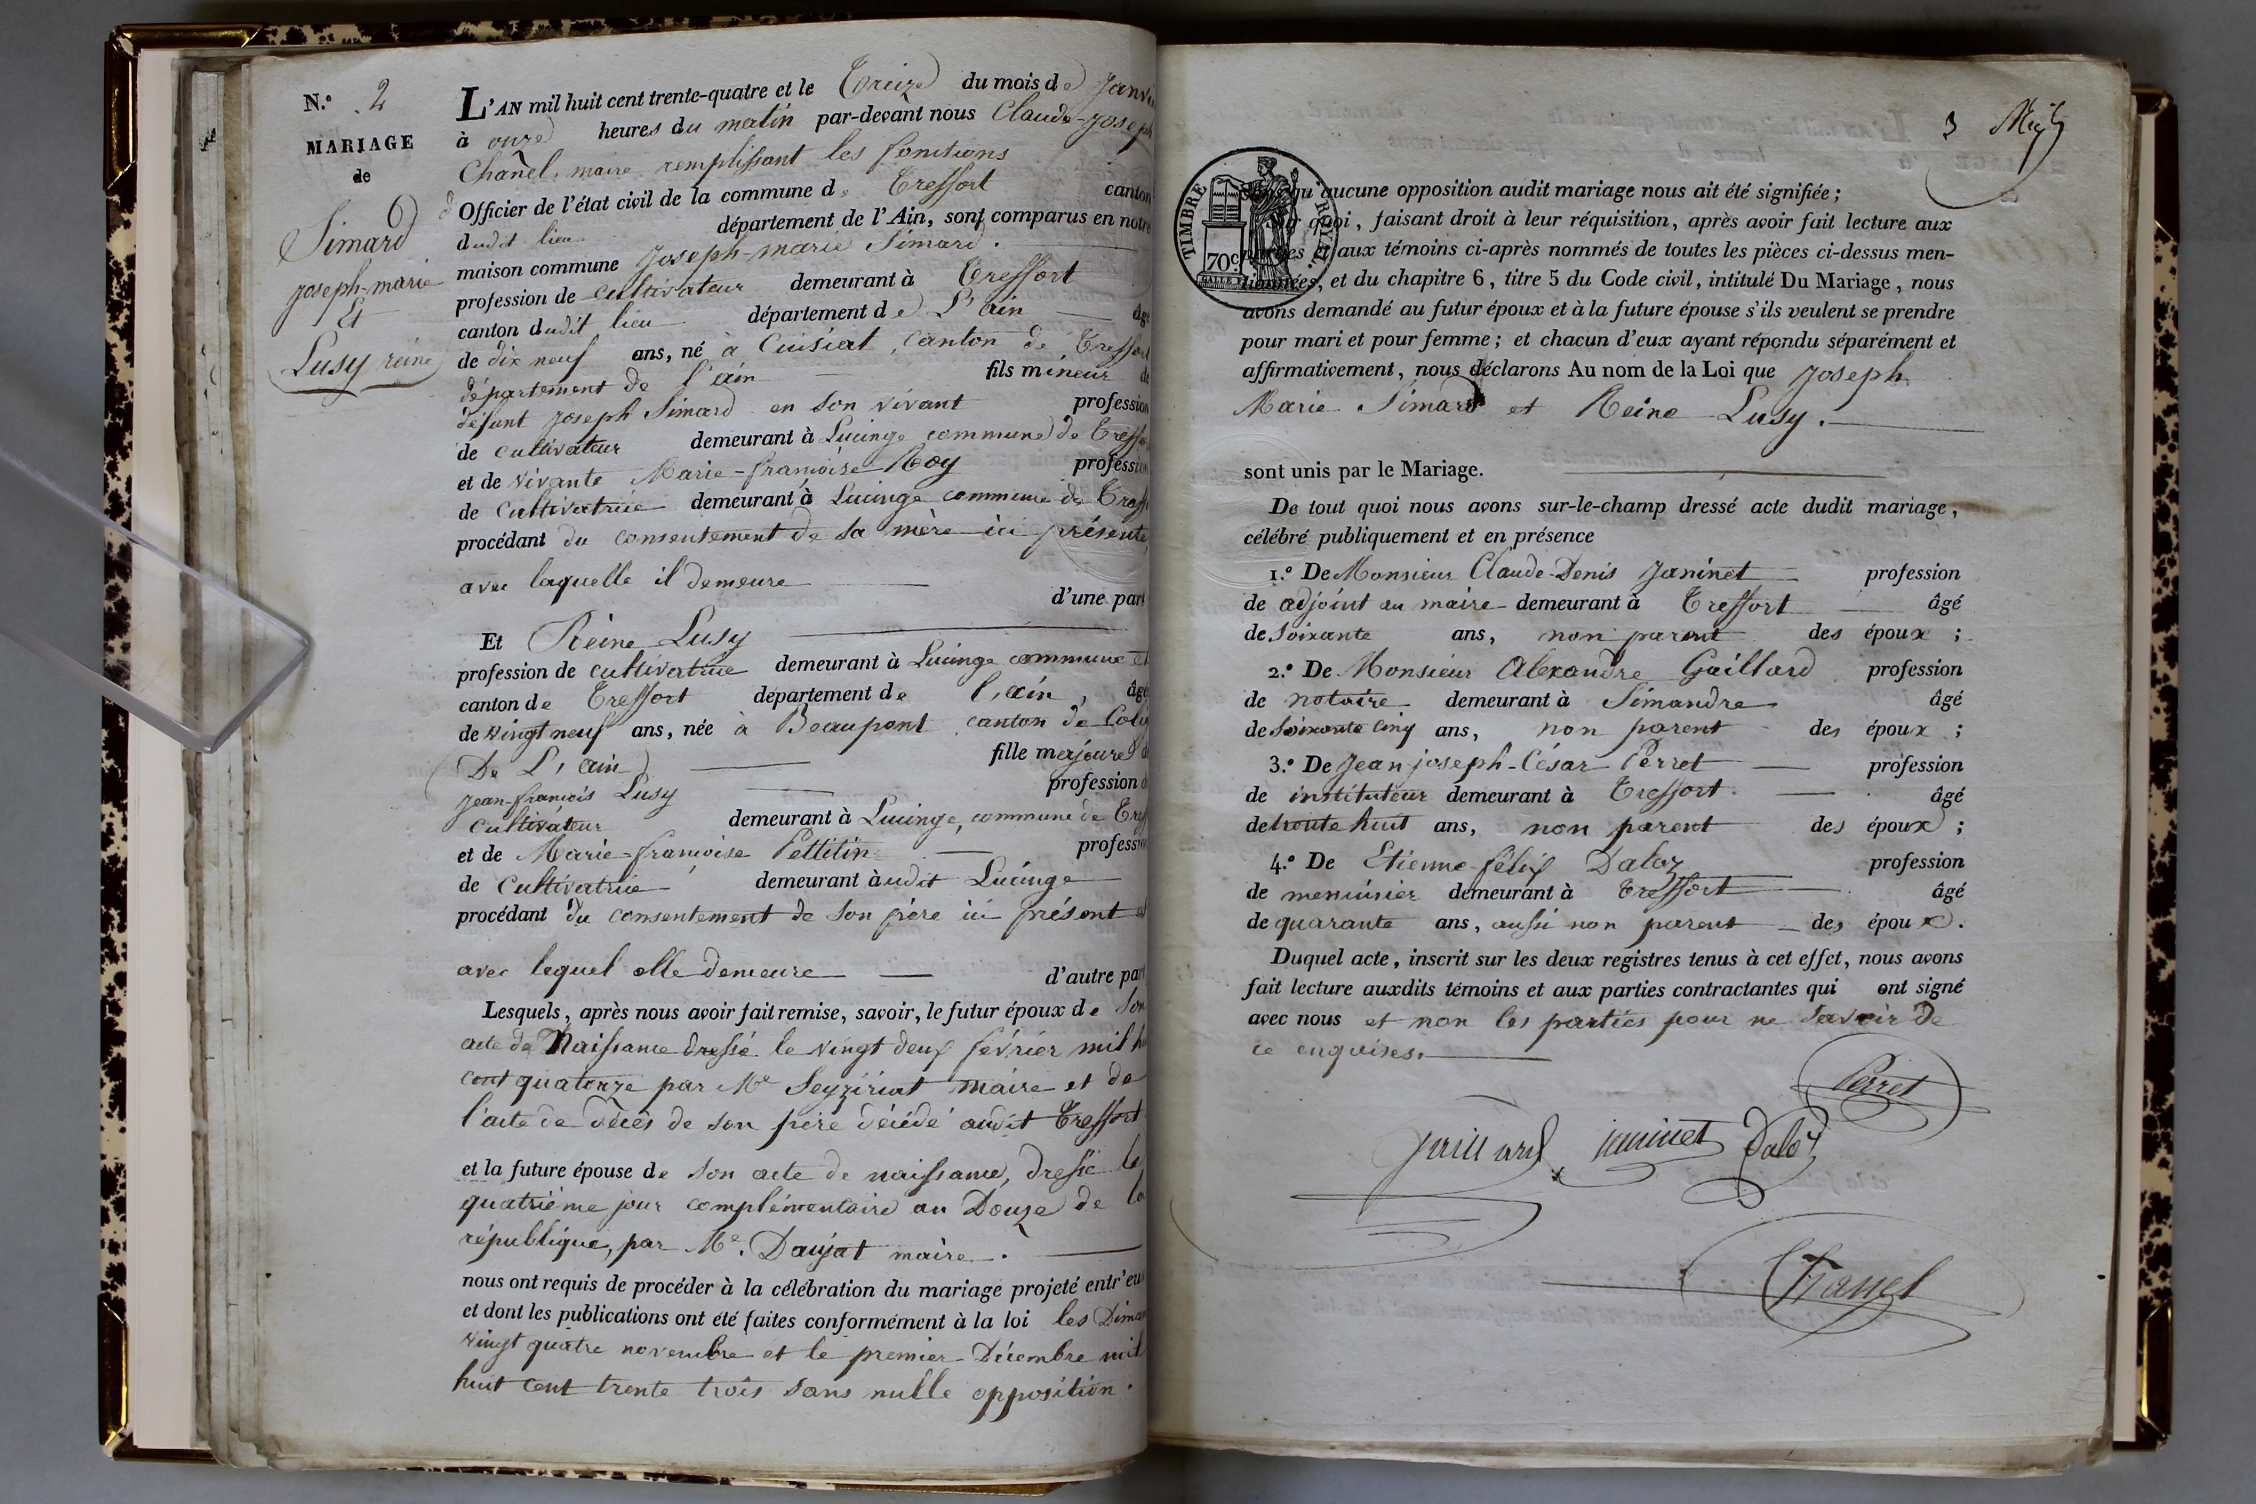 N.º 2
MARIAGE
de
Simard
joseph-marie
Et
Lusy reine
L'AN mil huit cent trente-quatre et le Treize du mois de Janvi
à onze heures du matin par-devant nous Claude-Joseph
Chanel, maire remplissant les fonctions
d'Officier de l'état civil de la commune de Treffort canton
dudit lieu département de l'Ain, sont comparus en notre
maison commune Joseph-marie Simard.
profession de cultivateur demeurant à Treffort
canton dudit lieu département de L'ain âgé
de dix neuf ans, né à Cuisiat, canton de Treffort
département de l'ain fils mineur de
défunt joseph Simard en son vivant profession
de cultivateur demeurant à Lucinge commune de Treffo
et de vivante Marie-françoise Roy profession
de Cultivatrice demeurant à Lucinge commune de Treff
procédant du consentement de sa mère ici présente,
avec laquelle il demeure d'une part
Et Reine Lusy
profession de cultivatrice demeurant à Lucinge commune et
canton de Treffort département de l'ain, âgé
de vingt neuf ans, née à Beaupont canton de Coli
De L'ain fille majeure de
Jean-françois Lusy profession de
cultivateur demeurant à Lucinge, commune de Treff
et de Marie-françoise Pettitin profession
de Cultivatrice demeurant àudit Lucinge
procédant du consentement de son père ici présent et
avec lequel elle demeure d'autre part
Lesquels, après nous avoir fait remise, savoir, le futur époux de son
acte de Naissance dressé le vingt deux février mil hu
cent quatorze par Me Seyziriat maire et de
l'acte de décès de son père décédé audit Treffort
et la future épouse de son acte de naissance, dressé le
quatrième jour complémentaire an Douze de la
république, par Me. Daujat maire.
nous ont requis de procéder à la célébration du mariage projeté entr'eux
et dont les publications ont été faites conformément à la loi les Diman
vingt quatre novembre et le premier Décembre mil
huit cent trente trois sans nulle opposition.
3
TIMBRE ROYAL
70c
qu'aucune opposition audit mariage nous ait été signifiée;
quoi, faisant droit à leur réquisition, après avoir fait lecture aux
parties et aux témoins ci-après nommés de toutes les pièces ci-dessus men-
tionnées, et du chapitre 6, titre 5 du Code civil, intitulé Du Mariage, nous
avons demandé au futur époux et à la future épouse s'ils veulent se prendre
pour mari et pour femme; et chacun d'eux ayant répondu séparément et
affirmativement, nous déclarons Au nom de la Loi que Joseph
Marie Simard et Reine Lusy.
sont unis par le Mariage.
De tout quoi nous avons sur-le-champ dressé acte dudit mariage,
célébré publiquement et en présence
1.º De Monsieur Claude-Denis Janinet profession
de adjoint au maire demeurant à Treffort âgé
de soixante ans, non parent des époux;
2.º De Monsieur Alexandre Gaillard profession
de notaire demeurant à Simandre âgé
de soixante cinq ans, non parent des époux;
3.º De Jean-joseph-César Perret profession
de instituteur demeurant à Treffort. âgé
de trente huit ans, non parent des époux;
4.º De Etienne-félix Daloz profession
de menuisier demeurant à Treffort âgé
de quarante ans, aussi non parent des époux.
Duquel acte, inscrit sur les deux registres tenus à cet effet, nous avons
fait lecture auxdits témoins et aux parties contractantes qui ont signé
avec nous et non les parties pour ne savoir de
ce enquises.
Perret
Gaillard janinet Daloz
Chanel